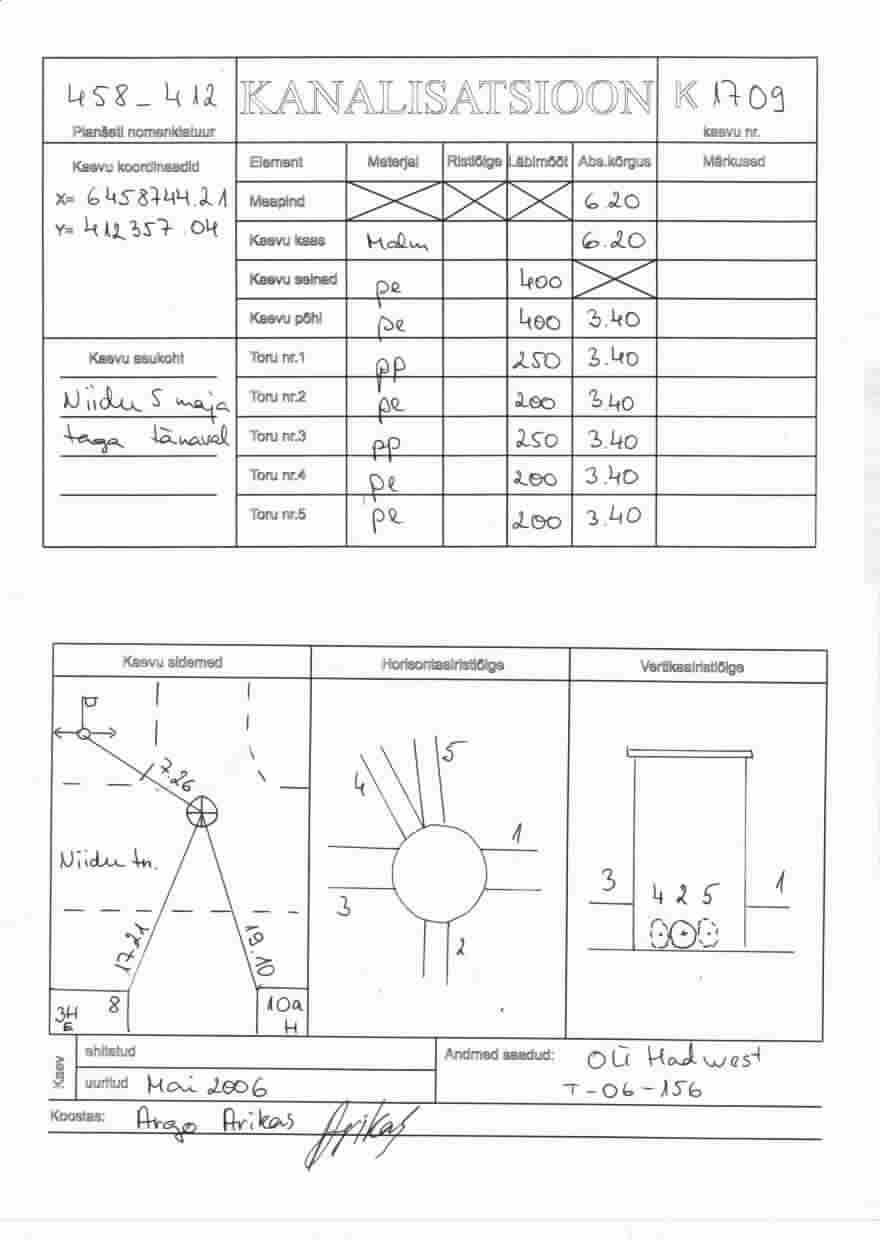 458-412 KANALISATSIOON K 1709
Planšeti nomenklatuur kaevu nr.
Kaevu koordinaadid Element Materjal Ristlõige Läbimõõt Abs.kõrgus Märkused
X= 6458744.21
Y= 412357.04
Maapind 6.20
Kaevu kaas Malm 6.20
Kaevu seined pe 400
Kaevu põhi pe 400 3.40
Kaevu asukoht Toru nr.1 pp 250 3.40
Niidu 5 maja Toru nr.2 pe 200 3.40
taga tänaval Toru nr.3 pp 250 3.40
Toru nr.4 pe 200 3.40
Toru nr.5 pe 200 3.40
Kaevu sidemed Horisontaalristlõige Vertikaalristlõige
7.26
Niidu tn.
17.21 19.10
3H 8 10a
E H
5
4
1
3
2
3 4 2 5 1
Kaev ehitatud Andmed saadud: OÜ Hadwest
uuritud Mai 2006 T-06-156
Koostas: Argo Arikas Arikas